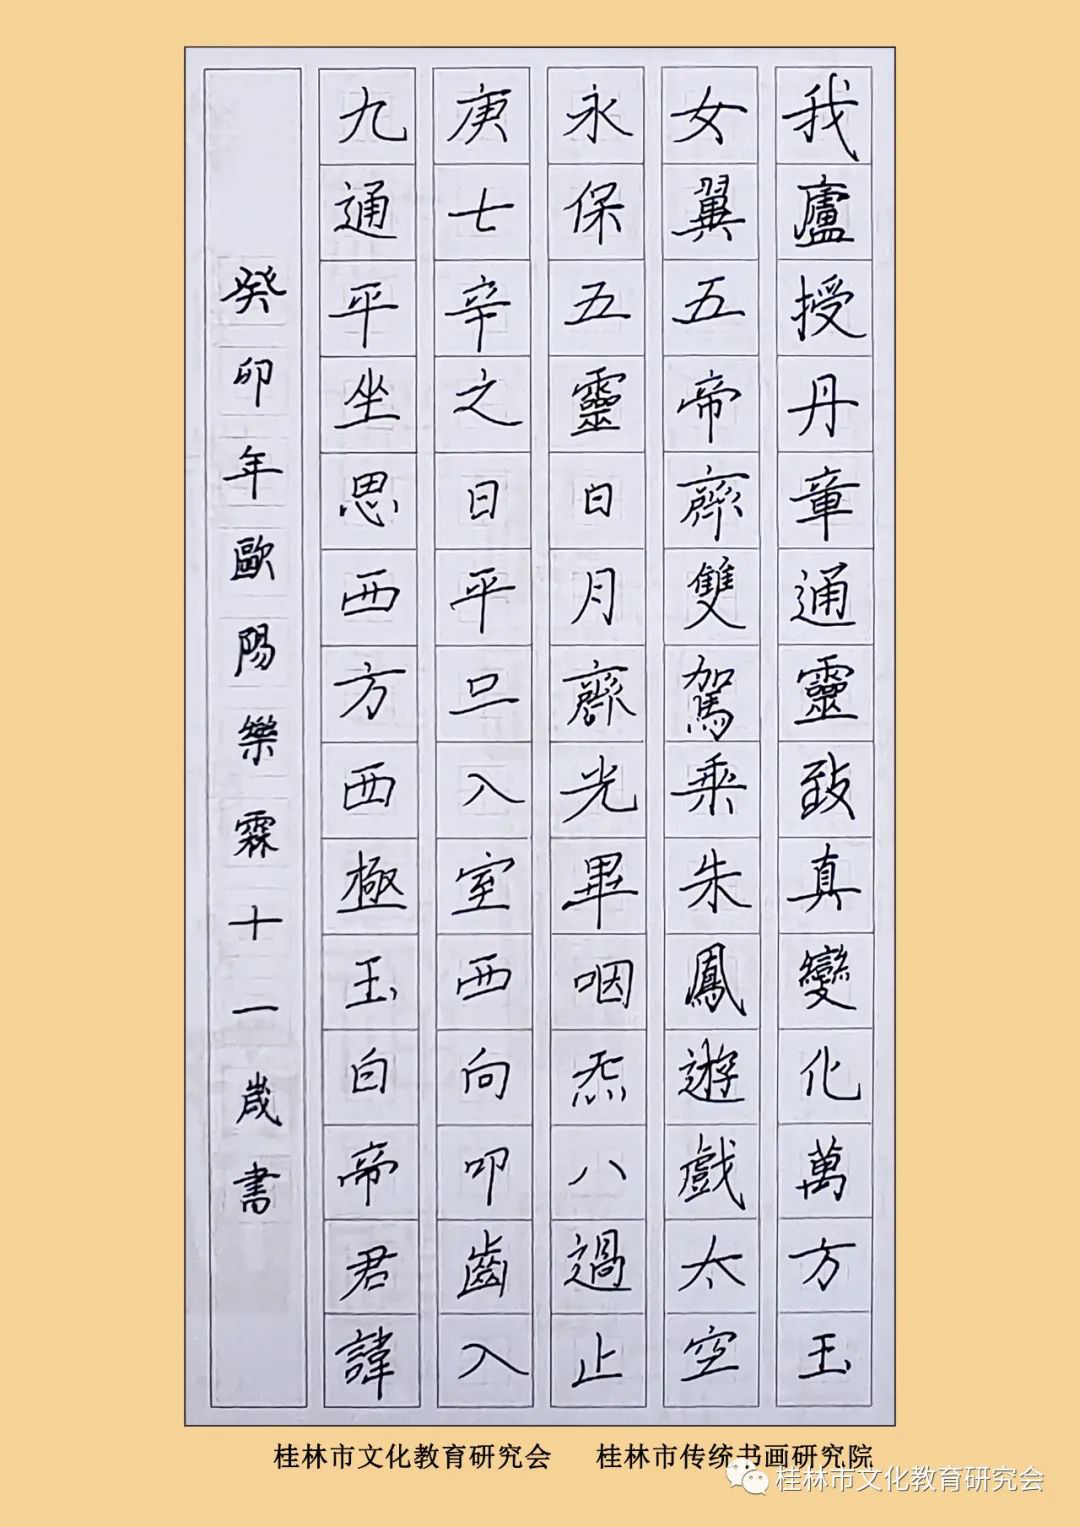 我廬授丹章通靈致真變化萬方玉
女翼五帝齊雙駕乘朱鳳遊戲太空
永保五靈日月齊光畢咽炁八過止
庚七辛之日平旦入室西向叩齒入
九通平坐思西方西極玉白帝君諱
癸卯年歐陽樂霖十一歲書
桂林市文化教育研究会 桂林市传统书画研究院
桂林市文化教育研究会